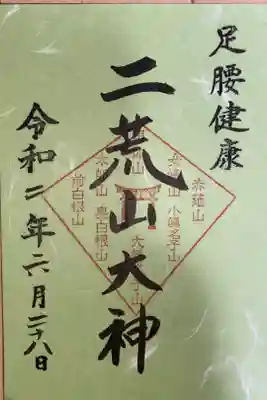 足腰健康
二荒山大神
令和二年六月二十八日
赤薙山
小真名子山
太郎山
奥白根山
前白根山